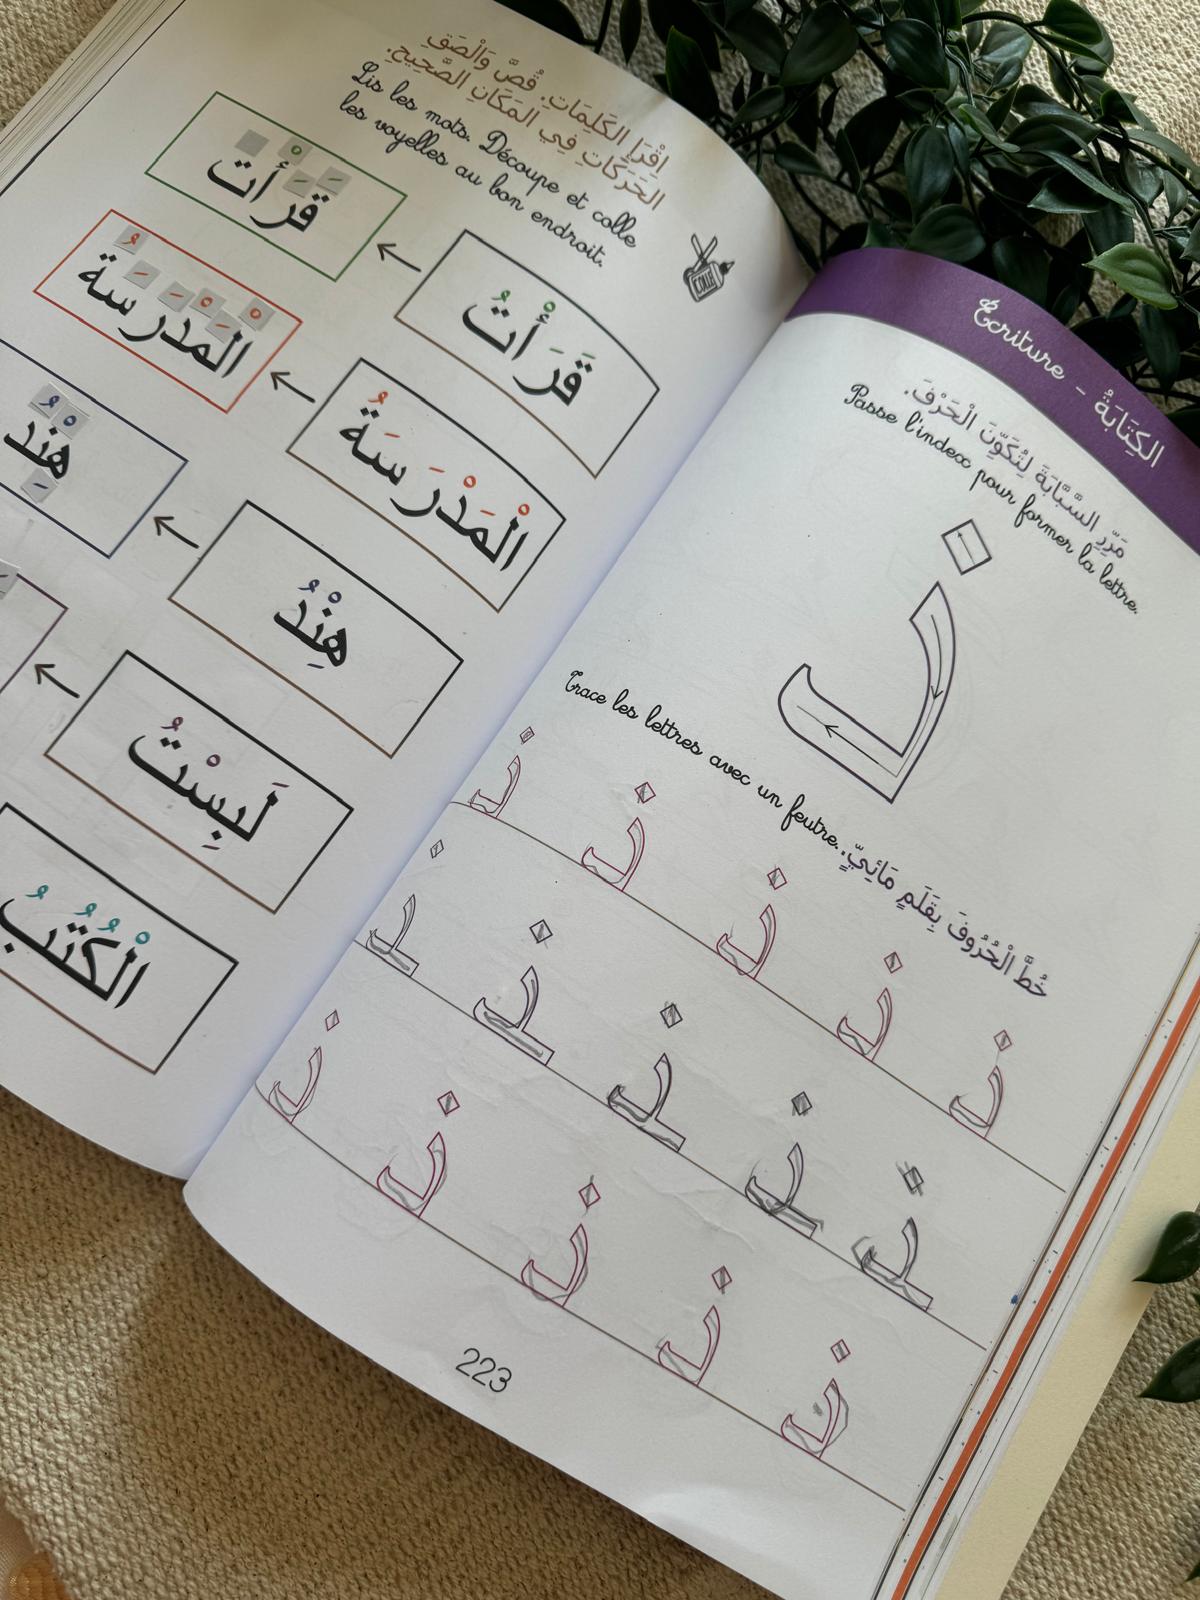 اِقْرَإِ الكَلِمَاتِ. قُصَّ وَالْصَقِ
الحَرَكَاتِ فِي المَكَانِ الصَّحِيحِ.
Lis les mots. Découpe et colle
les voyelles au bon endroit.
COLLE
قَرَأْتُ
قرأت
الْمَدْرَسَةُ
المدرسة
هِنْدُ
هند
لَبِسْتُ
الْكُتُبُ
Écriture - الكِتَابَةُ
مَرِّرِ السَّبَّابَةَ لِتُكَوِّنَ الْحَرْفَ.
Passe l'index pour former la lettre.
ذ
خُطَّ الْحُرُوفَ بِقَلَمٍ مَائِيٍّ.
Trace les lettres avec un feutre.
ذ ذ ذ ذ ذ
ذ ذ ذ ذ ذ
ذ ذ ذ ذ ذ
223